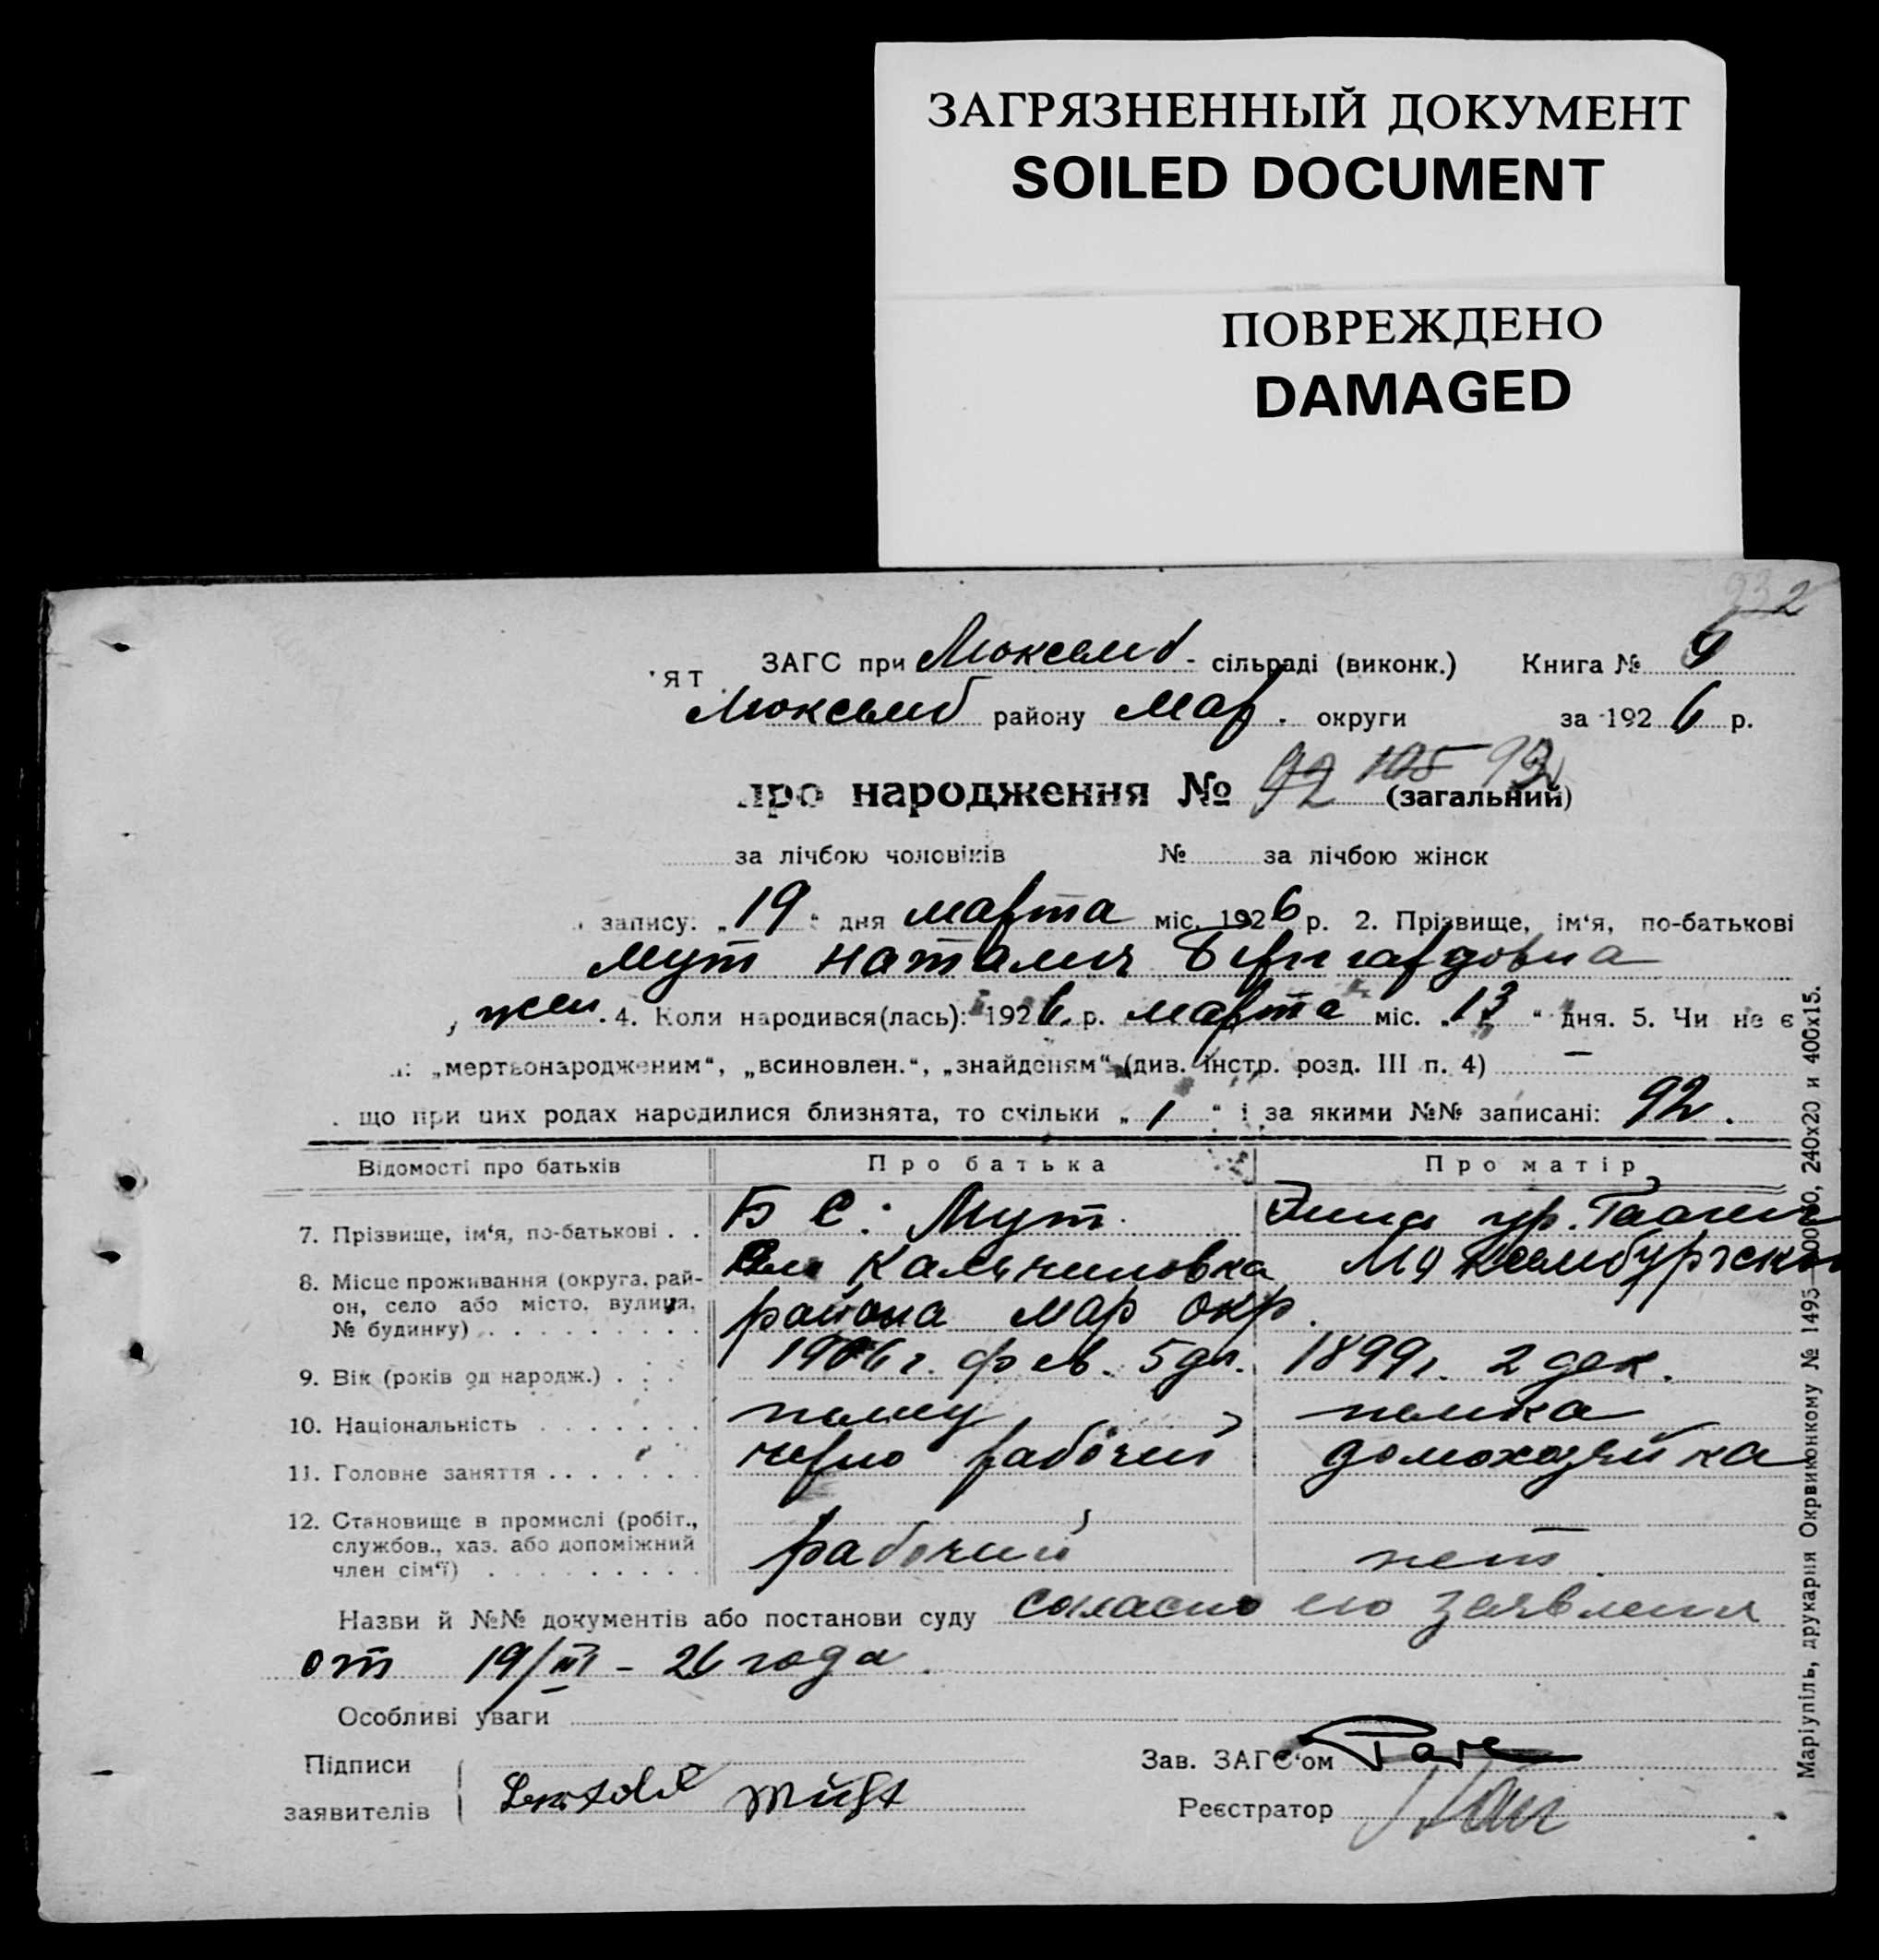 ЗАГРЯЗНЕННЫЙ ДОКУМЕНТ
SOILED DOCUMENT
ПОВРЕЖДЕНО
DAMAGED
ЯТ ЗАГС при Люксемб. сільраді (виконк.) Книга №
Люксемб району Мар. округи за 1926 р.
про народження № 92 105 93 (загальний)
за лічбою чоловіків № за лічбою жінск
запису: „19“ дня марта міс. 1926 р. 2. Прізвище, ім‘я, по-батькові
Мут Наталия Бернгардовна
, жен. 4. Коли народився(лась): 1926. р. марта міс. „13“ дня. 5. Чи не є
„мертвонародженим“, „всиновлен.“, „знайденям“ (див. інстр. розд. III п. 4) —
що при цих родах народилися близнята, то скільки „1“ і за якими №№ записані: 92.
Відомості про батьків Про батька Про матір
7. Прізвище, ім‘я, по-батькові . . Б С: Мут. Энна ур.
8. Місце проживання (округа, рай-
он, село або місто, вулиця,
№ будинку) . . . . . . . . . Кальчиновка Люксембургского
района Мар окр.
9. Вік (років од народж.) . . . 1906 г. фев. 5 дн. 1899 г. 2 дек.
10. Національність . . . . . . . немец немка
11. Головне заняття . . . . . . . черно рабочий домохозяйка
12. Становище в промислі (робіт.,
службов., хаз. або допоміжний
член сім‘ї) . . . . . . . . . рабочий нет
Назви й №№ документів або постанови суду согласно его заявления
от 19/III – 26 года.
Особливі уваги
Підписи
заявителів
Зав. ЗАГС‘ом
Реєстратор
Маріупіль, друкарня Окрвиконкому № 1495 240х20 и 400х15.